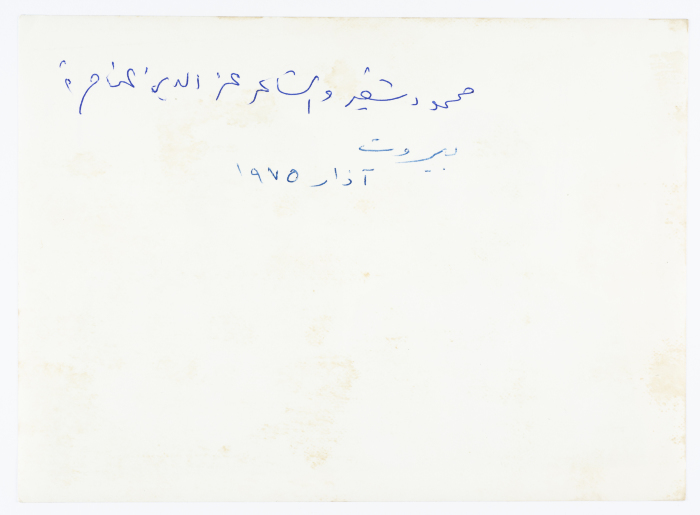 محمود شقير والشاعر عز الدين المناصرة
بيروت
آذار ١٩٧٥